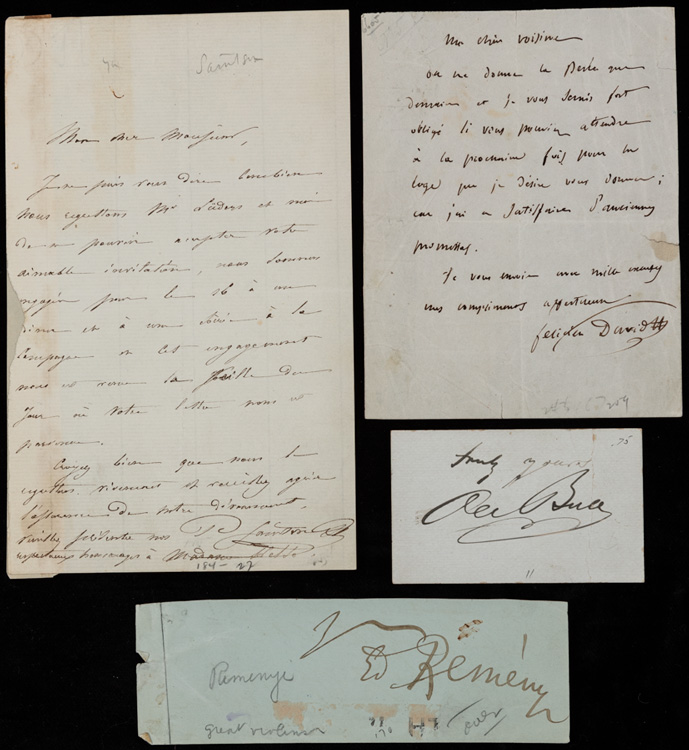 Sainton
Mon cher Monsieur,
Je ne puis vous dire combien
nous regrettons Mr et moi
de ne pouvoir accepter votre
aimable invitation, nous sommes
engagés pour le 26 à un
diner et à une soirée à la
campagne et cet engagement
nous est venu la veille du
jour où votre lettre nous est
parvenue.
Croyez bien que nous le
regrettons vivement et veuillez agréer
l'assurance de notre dévouement,
P. Sainton
respectueux hommages à Madame
184-27
Mon cher voisin
on ne donne la Perle que
demain et je vous serais fort
obligé si vous pouviez attendre
à la prochaine fois pour la
loge que je désire vous donner;
car j'ai a satisfaire d'anciennes
promesses.
Je vous envoie avec mille excuses
mes compliments affectueux
felicien David
truly yours
Ole Bull
75
11
Ed Reményi
Remenye
great violinist